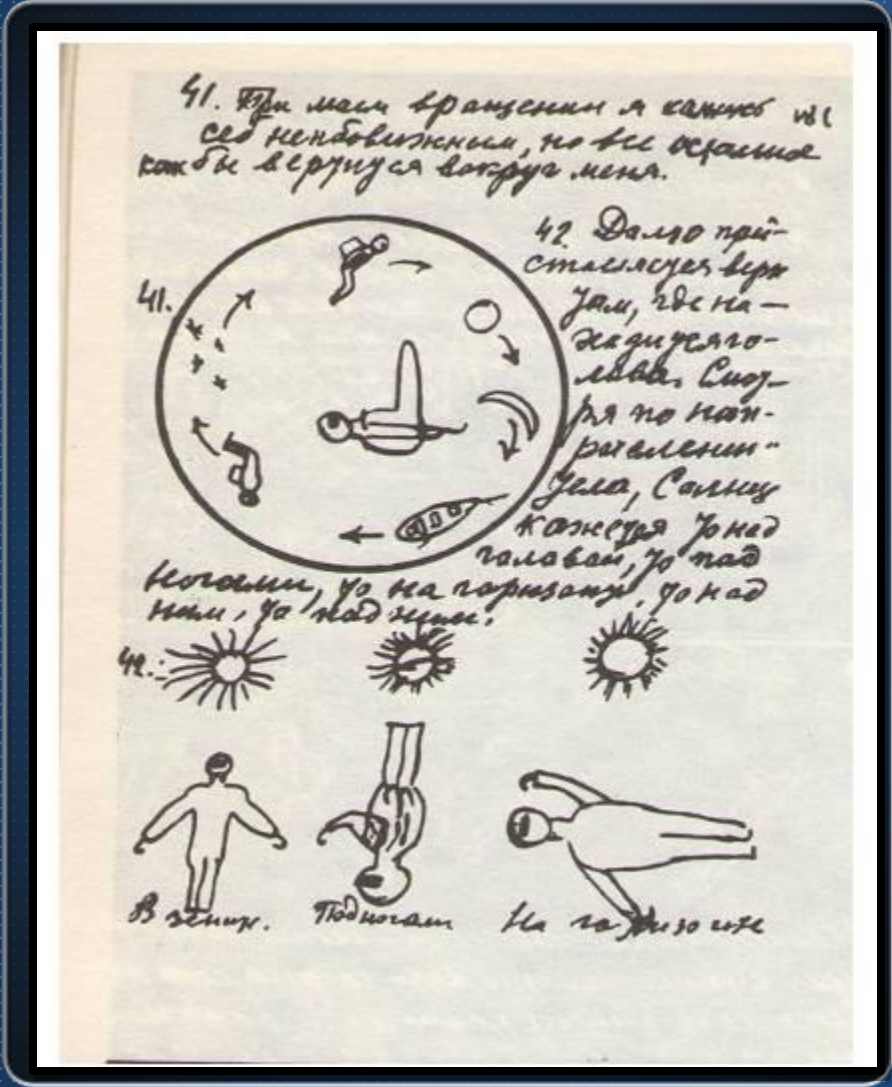 41. При моем вращении я кажусь
себе неподвижным, но все остальное
как бы вертится вокруг меня.
41.
42. при-
верх
там, где на-
ходится го-
лова. Смот-
ря по нап-
равлению
тела, Солнце
кажется то над
головой, то под
ногами, то на горизонте, то над
ним, то под ним.
42.
В зените.
Под ногами
На горизонте